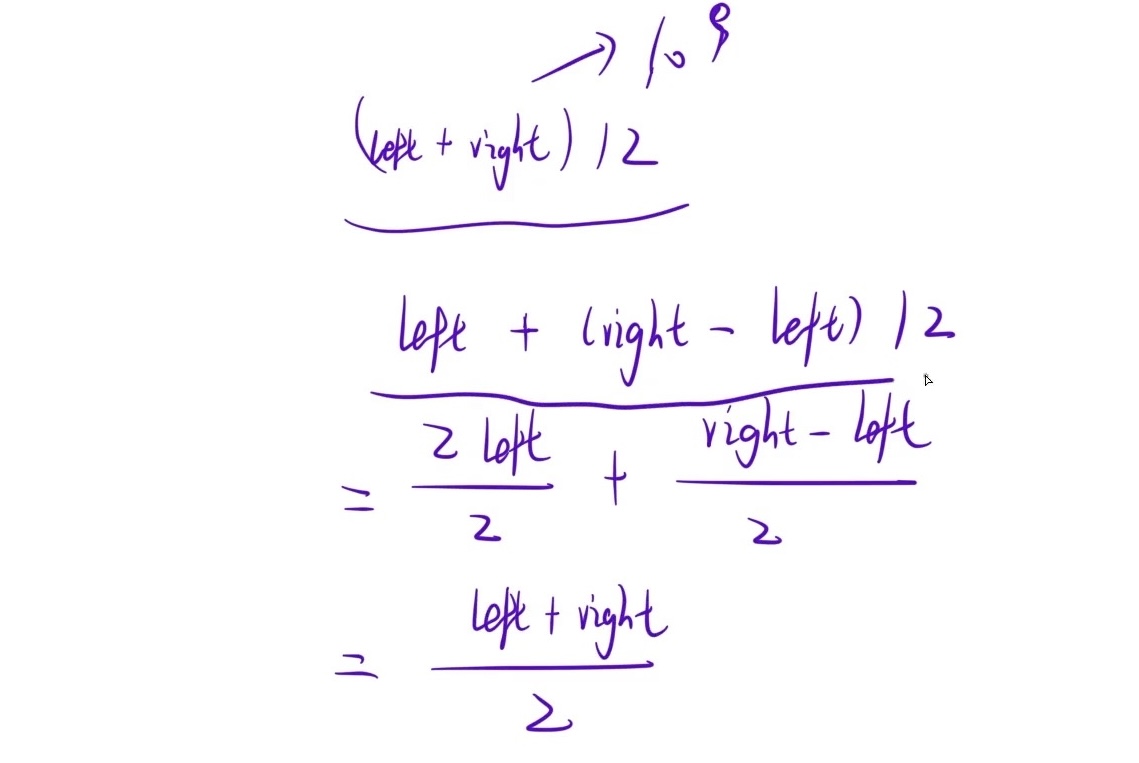 → 10^9
(left + right) / 2
left + (right - left) / 2
= 2 left / 2 + right - left / 2
= left + right / 2